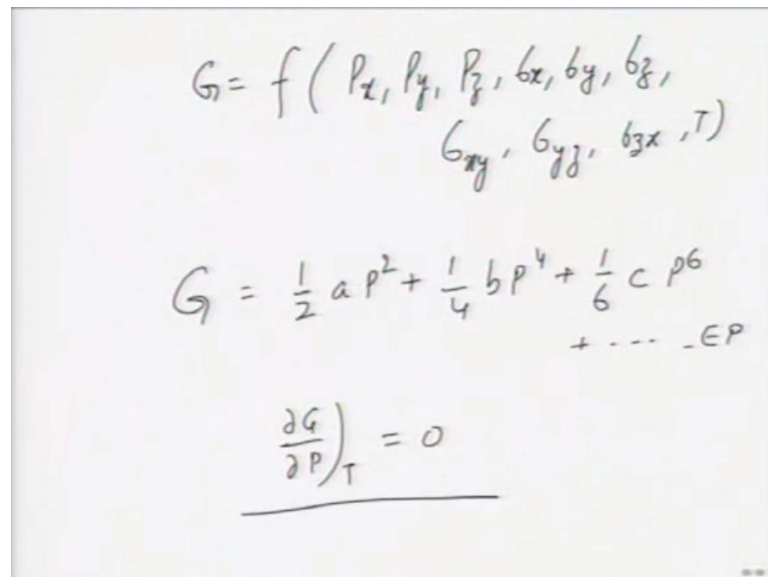 G = f ( Px, Py, Pz, σx, σy, σz,
σxy, σyz, σzx, T)
G = 1/2 a P² + 1/4 b P⁴ + 1/6 c P⁶
+ ---- - EP
∂G/∂P)T = 0